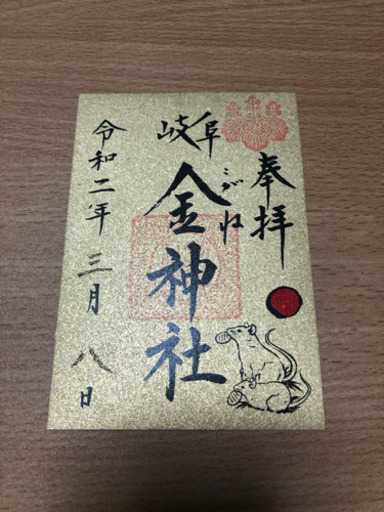 奉拝
岐阜
こがね
金神社
令和二年三月八日